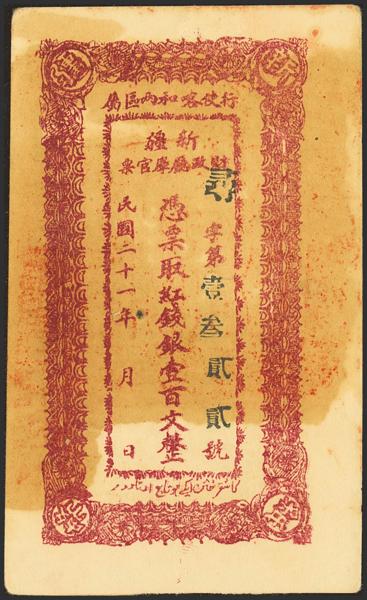 新疆
行使喀和兩區
新疆
財政廳庫官票
尋字第壹叁貳貳號
憑票取紅錢銀壹百文整
民國二十一年 月 日